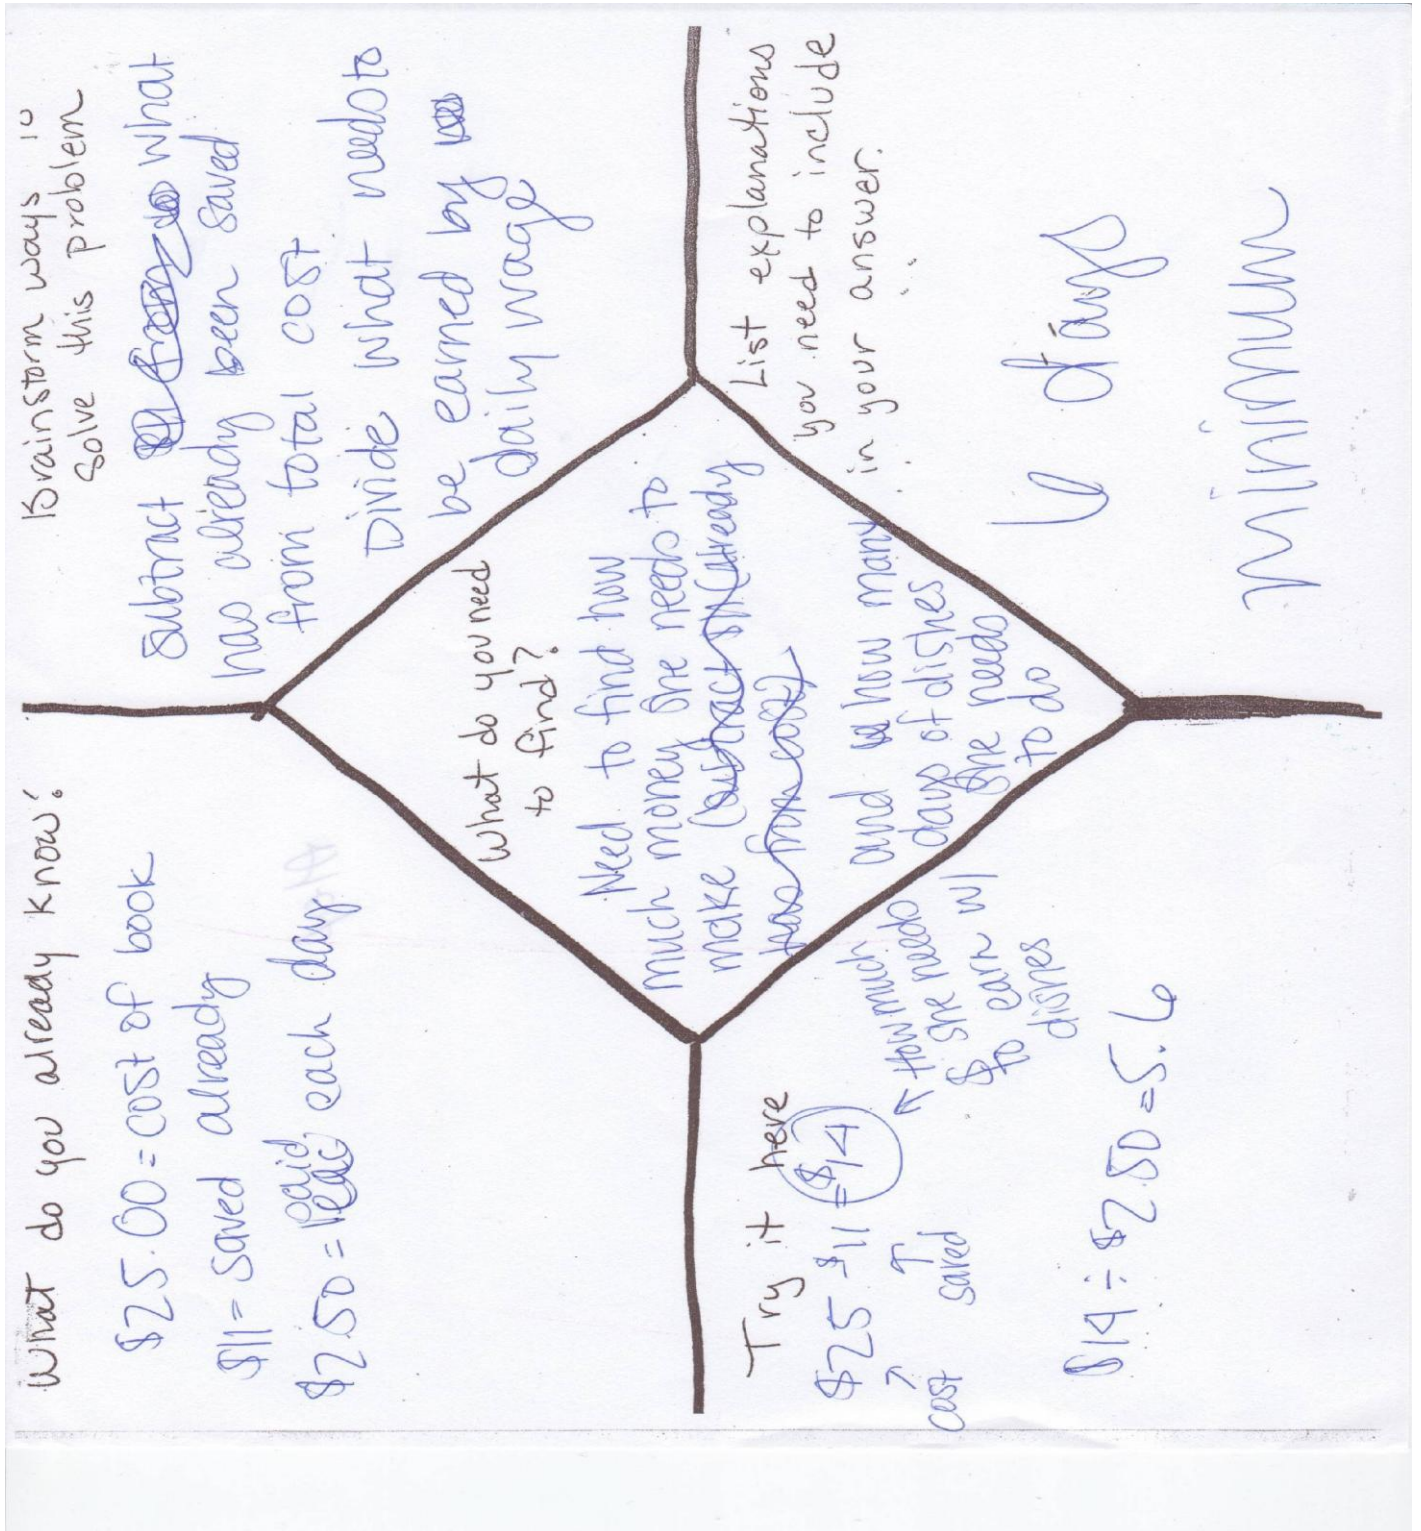 What do you already know?
$25.00 = cost of book
$11 = saved already
$2.50 = paid each day
Brainstorm ways to
Solve this problem
Subtract what
has already been saved
from total cost
Divide what needs to
be earned by
daily wage
What do you need
to find?
Need to find how
much money she needs to
make (subtract $ already
has from cost)
and how many
days of dishes
she needs
to do
Try it here
$25 - $11 = $14
↑ cost
↑ saved
↖ How much
$ she needs
to earn w/
dishes
$14 ÷ $2.50 = 5.6
List explanations
you need to include
in your answer.
6 days
minimum